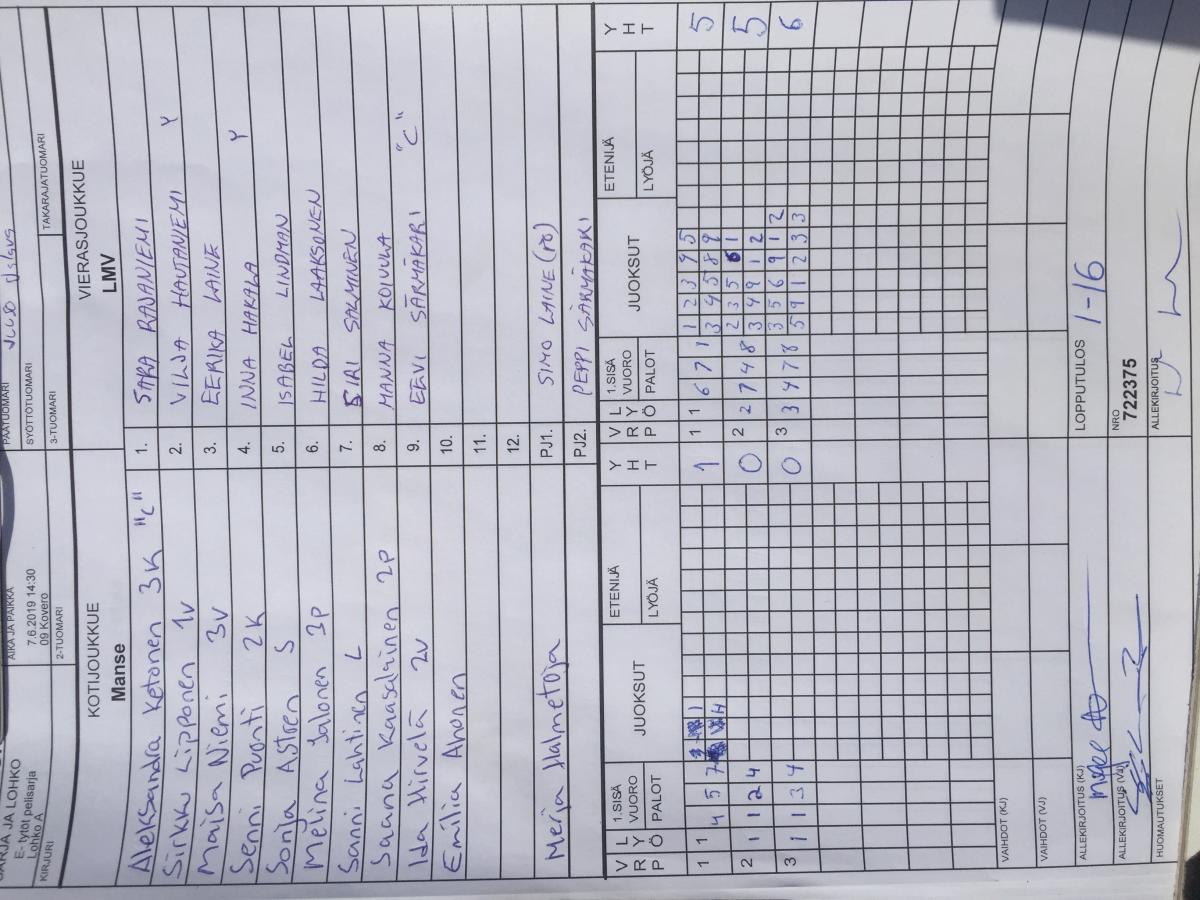 SARJA JA LOHKO
E- tytöt pelisarja
Lohko A
KIRJURI
AIKA JA PAIKKA
7.6.2019 14:30
09 Kovero
2-TUOMARI
PÄÄTUOMARI
SYÖTTÖTUOMARI
3-TUOMARI
TAKARAJATUOMARI
KOTIJOUKKUE
Manse
VIERASJOUKKUE
LMV
Aleksandra Ketonen 3K "C"
1. SARA RANANIEMI
Sirkku Lipponen 1v
2. VILJA HAUTANIEMI Y
Maisa Niemi 3v
3. EERIKA LAINE
Senni Puonti 2K
4. INNA HAKALA Y
Sonja Astren S
5. ISABEL LINDMAN
Melina Salonen 3P
6. HILDA LAAKSONEN
Sanni Lahtinen L
7. SIRI SALMINEN
Saana Kaasalainen 2P
8. MANNA KOIVULA
Ida Hirvelä 2v
9. EEVI SÄRMÄKARI "C"
Emilia Ahonen
10.
11.
12.
Merja Halmetoja
PJ1. SIMO LAINE (PÖ)
PJ2. PEPPI SÄRMÄKARI
V R P
L Y Ö
1.SISÄ VUORO
PALOT
JUOKSUT
ETENIJÄ
LYÖJÄ
Y H T
V R P
L Y Ö
1.SISÄ VUORO
PALOT
JUOKSUT
ETENIJÄ
LYÖJÄ
Y H T
1 1 4 5 7 1
1 1 6 7 1 1 2 3 9 5 5
3 4 5 8 9
2 1 1 2 4 0
2 2 7 4 8 2 3 5 6 1 5
3 4 9 1 2
3 1 1 3 4 0
3 3 4 7 8 3 5 6 9 1 2 6
5 9 1 2 3 3
VAIHDOT (KJ)
VAIHDOT (VJ)
ALLEKIRJOITUS (KJ)
LOPPUTULOS 1-16
ALLEKIRJOITUS (VJ)
NRO
722375
HUOMAUTUKSET
ALLEKIRJOITUS